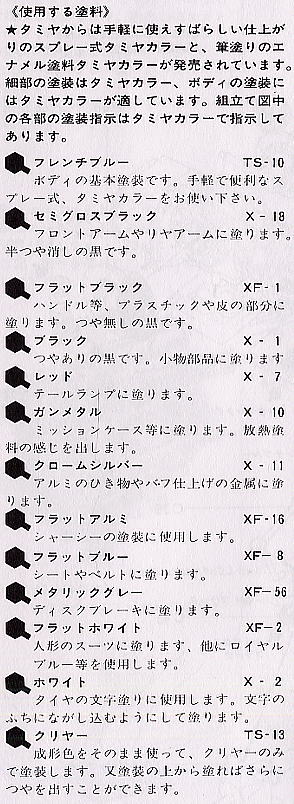 《使用する塗料》
★タミヤからは手軽に使えすばらしい仕上が
りのスプレー式タミヤカラーと、筆塗りのエ
ナメル塗料タミヤカラーが発売されています。
細部の塗装はタミヤカラー、ボディの塗装に
はタミヤカラーが適しています。組立て図中
の各部の塗装指示はタミヤカラーで指示して
あります。
フレンチブルー TS-10
ボディの基本塗装です。手軽で便利なス
プレー式、タミヤカラーをお使い下さい。
セミグロスブラック X-18
フロントアームやリヤアームに塗ります。
半つや消しの黒です。
フラットブラック XF-1
ハンドル等、プラスチックや皮の部分に
塗ります。つや無しの黒です。
ブラック X-1
つやありの黒です。小物部品に塗ります
レッド X-7
テールランプに塗ります。
ガンメタル X-10
ミッションケース等に塗ります。放熱塗
料の感じを出します。
クロームシルバー X-11
アルミのひき物やバフ仕上げの金属に塗
ります。
フラットアルミ XF-16
シャーシーの塗装に使用します。
フラットブルー XF-8
シートやベルトに塗ります。
メタリックグレー XF-56
ディスクブレーキに塗ります。
フラットホワイト XF-2
人形のスーツに塗ります、他にロイヤル
ブルー等を使用します。
ホワイト X-2
タイヤの文字塗りに使用します。文字の
ふちにながし込むようにして塗ります。
クリヤー TS-13
成形色をそのまま使って、クリヤーのみ
で塗装します。又塗装の上から塗ればさらに
つやを出すことができます。